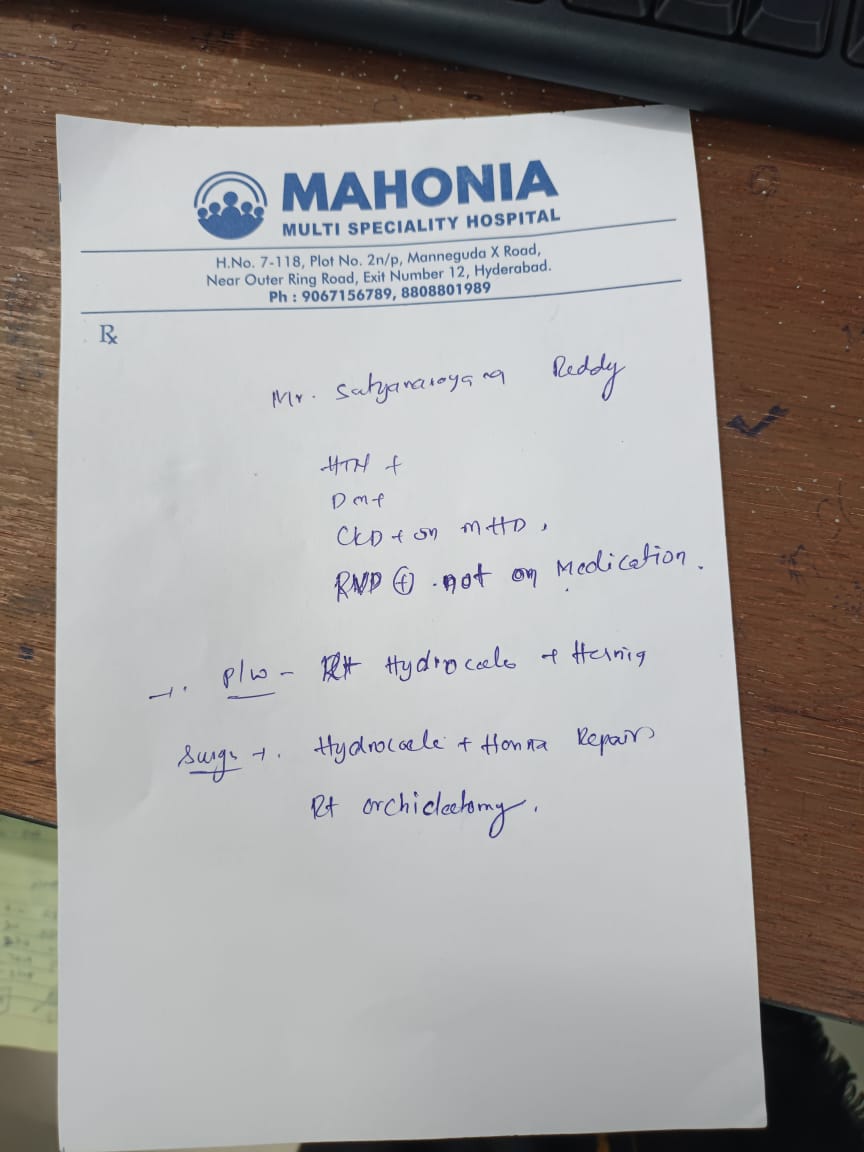 MAHONIA
MULTI SPECIALITY HOSPITAL
H.No. 7-118, Plot No. 2n/p, Manneguda X Road,
Near Outer Ring Road, Exit Number 12, Hyderabad.
Ph : 9067156789, 8808801989
℞
Mr. Satyanarayana Reddy
HTN +
DM+
CKD + on MHD,
RVD ⊕ . not on Medication.
→. P/w - Rt Hydrocele + Hernia
Surgs →. Hydrocele + Hernia Repair
Rt orchidectomy.